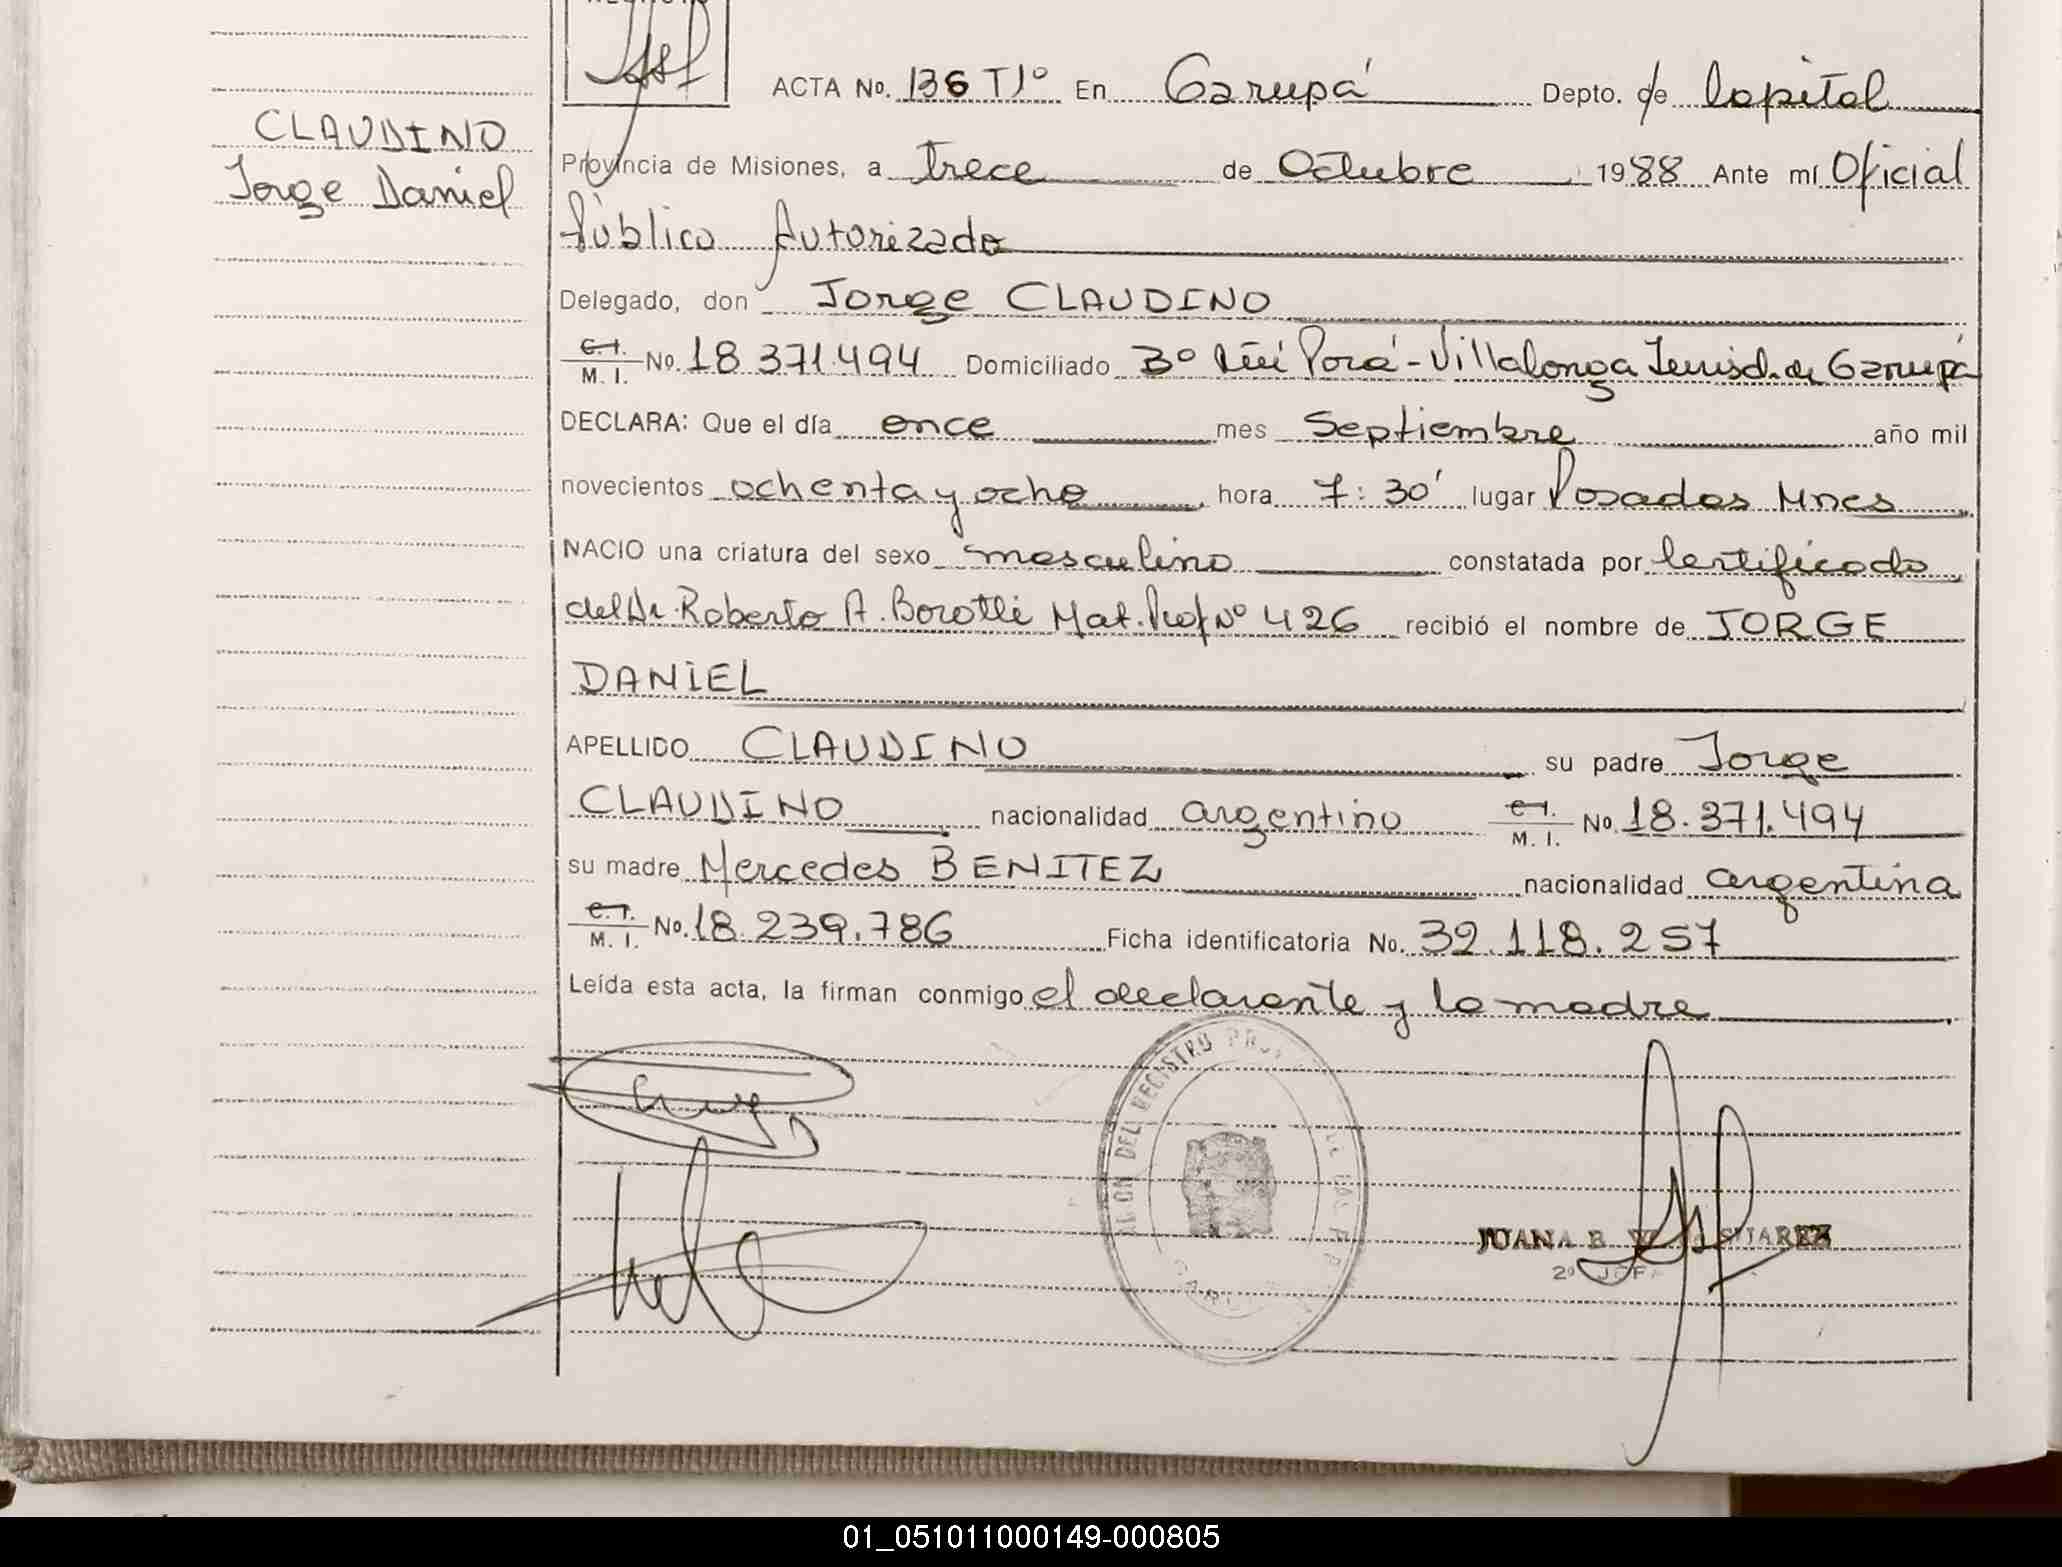 ACTA No. 136 T1º En Garupá Depto. de Capital
CLAUDINO
Jorge Daniel
Provincia de Misiones, a trece de Octubre 1988 Ante mí Oficial
Público Autorizado
Delegado, don Jorge CLAUDINO
C.I. M. I. No. 18.371.494 Domiciliado Bº Ñu Porá - Villalonga Jurisd. de Garupá
DECLARA: Que el día once mes Septiembre año mil
novecientos ochenta y ocho, hora 7:30' lugar Posadas Mnes
NACIO una criatura del sexo masculino constatada por Certificado
del Dr. Roberto A. Mat. Prof Nº 426 recibió el nombre de JORGE
DANIEL
APELLIDO CLAUDINO su padre Jorge
CLAUDINO nacionalidad argentino C.I. M. I. No. 18.371.494
su madre Mercedes BENITEZ nacionalidad argentina
C.I. M. I. No. 18.239.786 Ficha identificatoria No. 32.118.257
Leída esta acta, la firman conmigo el declarante y la madre
DEL REGISTRO
JUANA B. SUAREZ
01_051011000149-000805